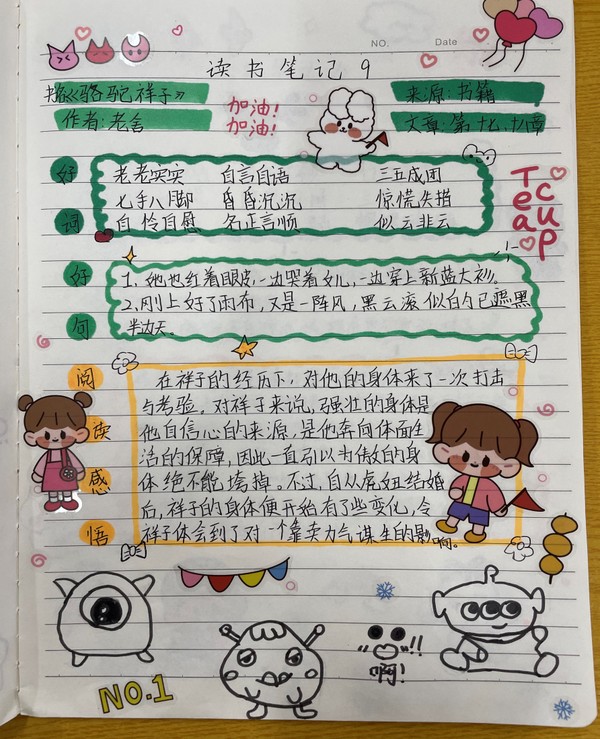 NO.
Date
读书笔记9
书名《骆驼祥子》
来源:书籍
作者:老舍
文章:第十七、十八章
加油!
加油!
Tea cup
好词
老老实实 自言自语 三五成团
七手八脚 昏昏沉沉 惊慌失措
自怜自慰 名正言顺 似云非云
好句
1、她也红着眼皮,一边哭着女儿,一边穿上新蓝大衫。
2、刚上好了雨布,又是一阵风,黑云滚似的已遮黑
半边天。
阅读感悟
在祥子的经历下,对他的身体来了一次打击
与考验。对祥子来说,强壮的身体是
他自信心的来源,是他奔向体面生
活的保障,因此一直引以为傲的身
体绝不能垮掉。不过,自从虎妞结婚
后,祥子的身体便开始有了些变化,令
祥子体会到了对一个靠卖力气谋生的影响。
!!
啊!
NO.1